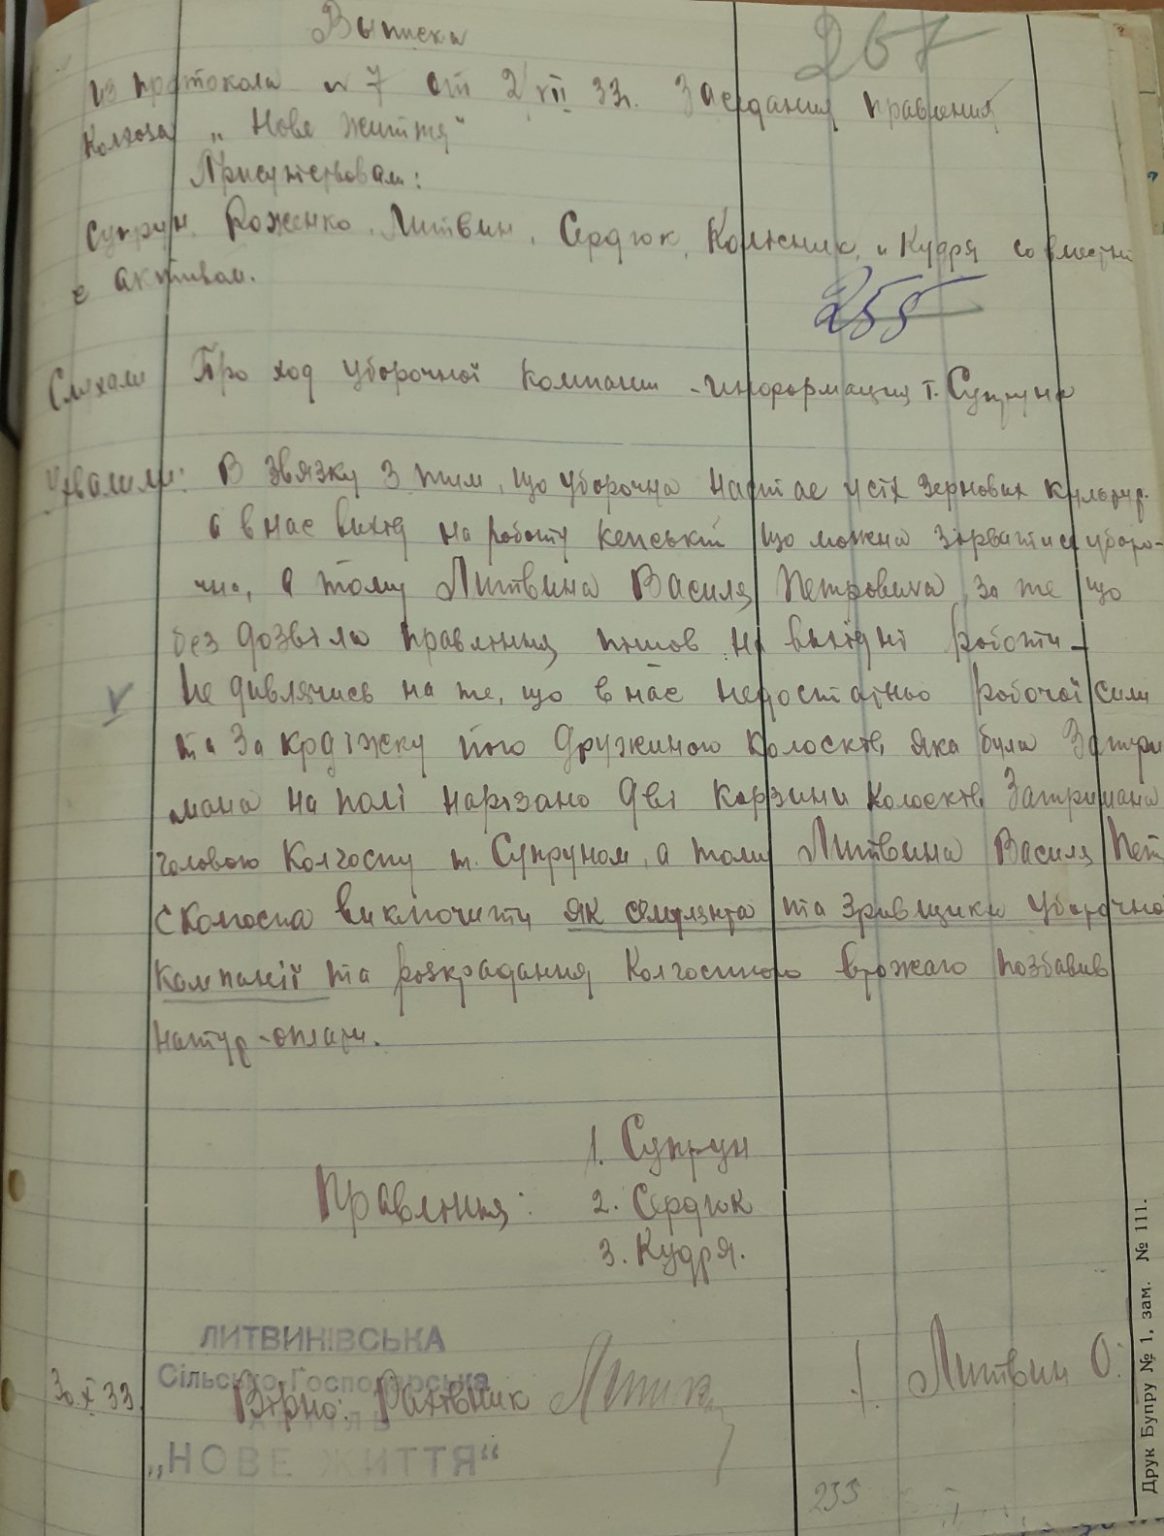 Выписка
267
из протокола № 7 от 2 VII 33г. Заседания правления
Колхоза „Нове життя"
Присутствовали:
Супрун, Роженко, Литвин, Сердюк, Колісник, и Кудря совместно
с активом.
255
Слухали Про ход уборочної компании - информация т. Супруна
Ухвалили: В звязку з тим, що уборочна настає усіх зернових культур.
а в нас вихід на роботу кепський що можна зірвати уборо-
чну, а тому Литвина Василя Петровича, за те що
без дозвіла правління пішов на вихідні роботи -
V Не дивлячись на те, що в нас недостатньо робочої сили
та за крадіжку його дружиною колосків, яка була затри
мана на полі нарізано дві корзини колосків, Затримана
головою Колгоспу т. Супруном, а тому Литвина Василя Пет
с колгоспа виключити як симулянта та зривщика уборочної
кампанії та розкрадання колгоспного врожаю позбавив
натур-оплати.
1. Супрун
Правління: 2. Сердюк
3. Кудря.
ЛИТВИНІВСЬКА
Сільсько-Господарська
АРТІЛЬ
„НОВЕ ЖИТТЯ"
30 XI 33. Вірно: Рахівник
Литвин О.
233
Друк Бупру № 1, зам. № 111.